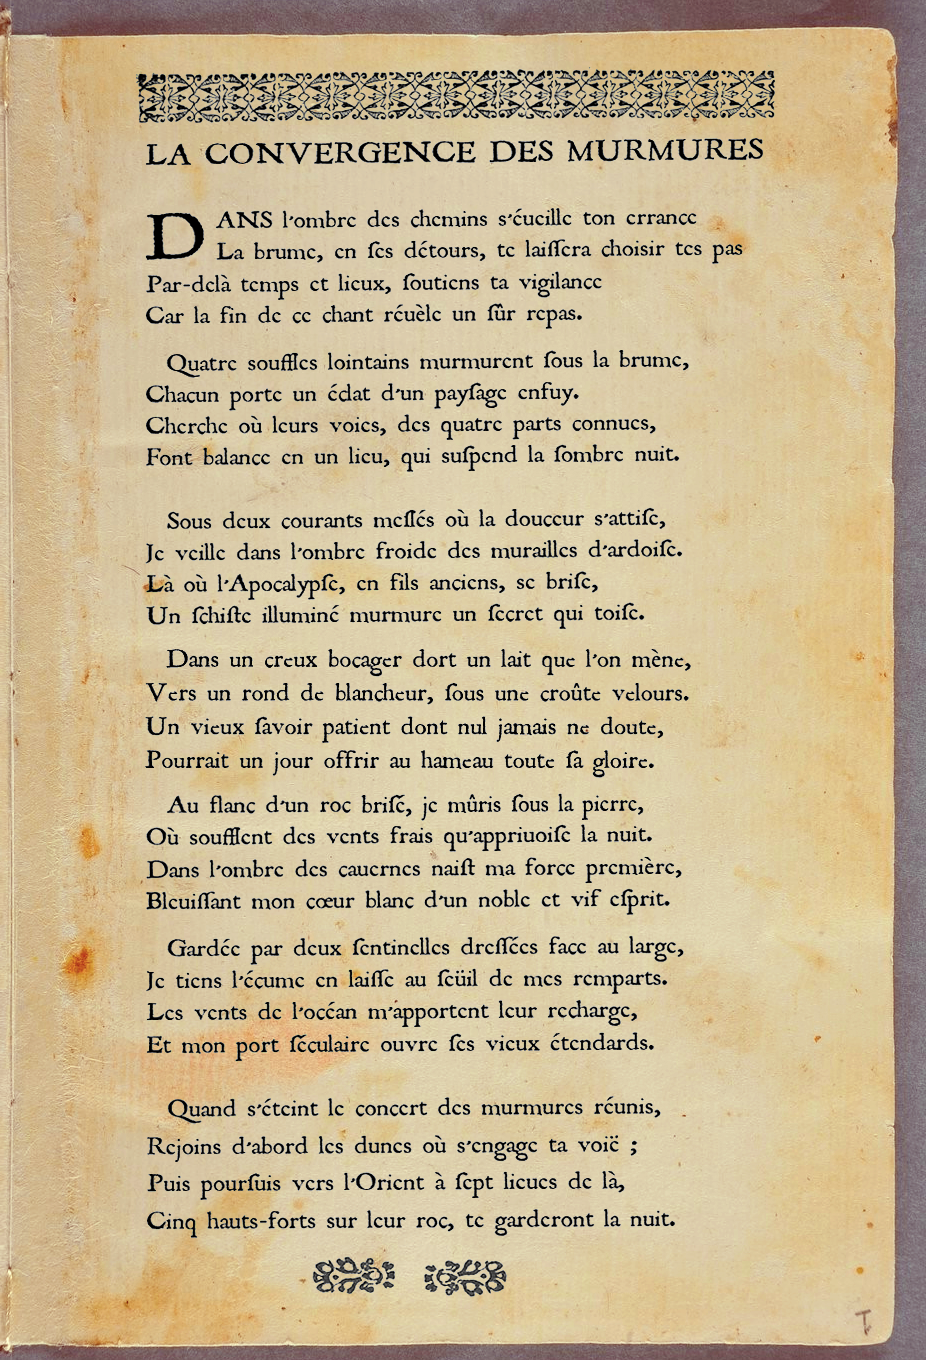 LA CONVERGENCE DES MURMURES
DANS l'ombre des chemins s'éueille ton errance
La brume, en ſes détours, te laiſſera choisir tes pas
Par-delà temps et lieux, ſoutiens ta vigilance
Car la fin de ce chant réuèle un ſûr repas.
Quatre souffles lointains murmurent ſous la brume,
Chacun porte un éclat d'un payſage enfuy.
Cherche où leurs voies, des quatre parts connues,
Font balance en un lieu, qui suſpend la ſombre nuit.
Sous deux courants meſlés où la douceur s'attiſe,
Je veille dans l'ombre froide des murailles d'ardoiſe.
Là où l'Apocalypſe, en fils anciens, se briſe,
Un ſchiſte illuminé murmure un ſecret qui toiſe.
Dans un creux bocager dort un lait que l'on mène,
Vers un rond de blancheur, ſous une croûte velours.
Un vieux ſavoir patient dont nul jamais ne doute,
Pourrait un jour offrir au hameau toute ſa gloire.
Au flanc d'un roc briſé, je mûris ſous la pierre,
Où soufflent des vents frais qu'appriuoiſe la nuit.
Dans l'ombre des cauernes naiſt ma force première,
Bleuiſſant mon cœur blanc d'un noble et vif eſprit.
Gardée par deux ſentinelles dreſſées face au large,
Je tiens l'écume en laiſſe au ſeüil de mes remparts.
Les vents de l'océan m'apportent leur recharge,
Et mon port ſéculaire ouvre ſes vieux étendards.
Quand s'éteint le concert des murmures réunis,
Rejoins d'abord les dunes où s'engage ta voië ;
Puis pourſuis vers l'Orient à ſept lieues de là,
Cinq hauts-forts sur leur roc, te garderont la nuit.